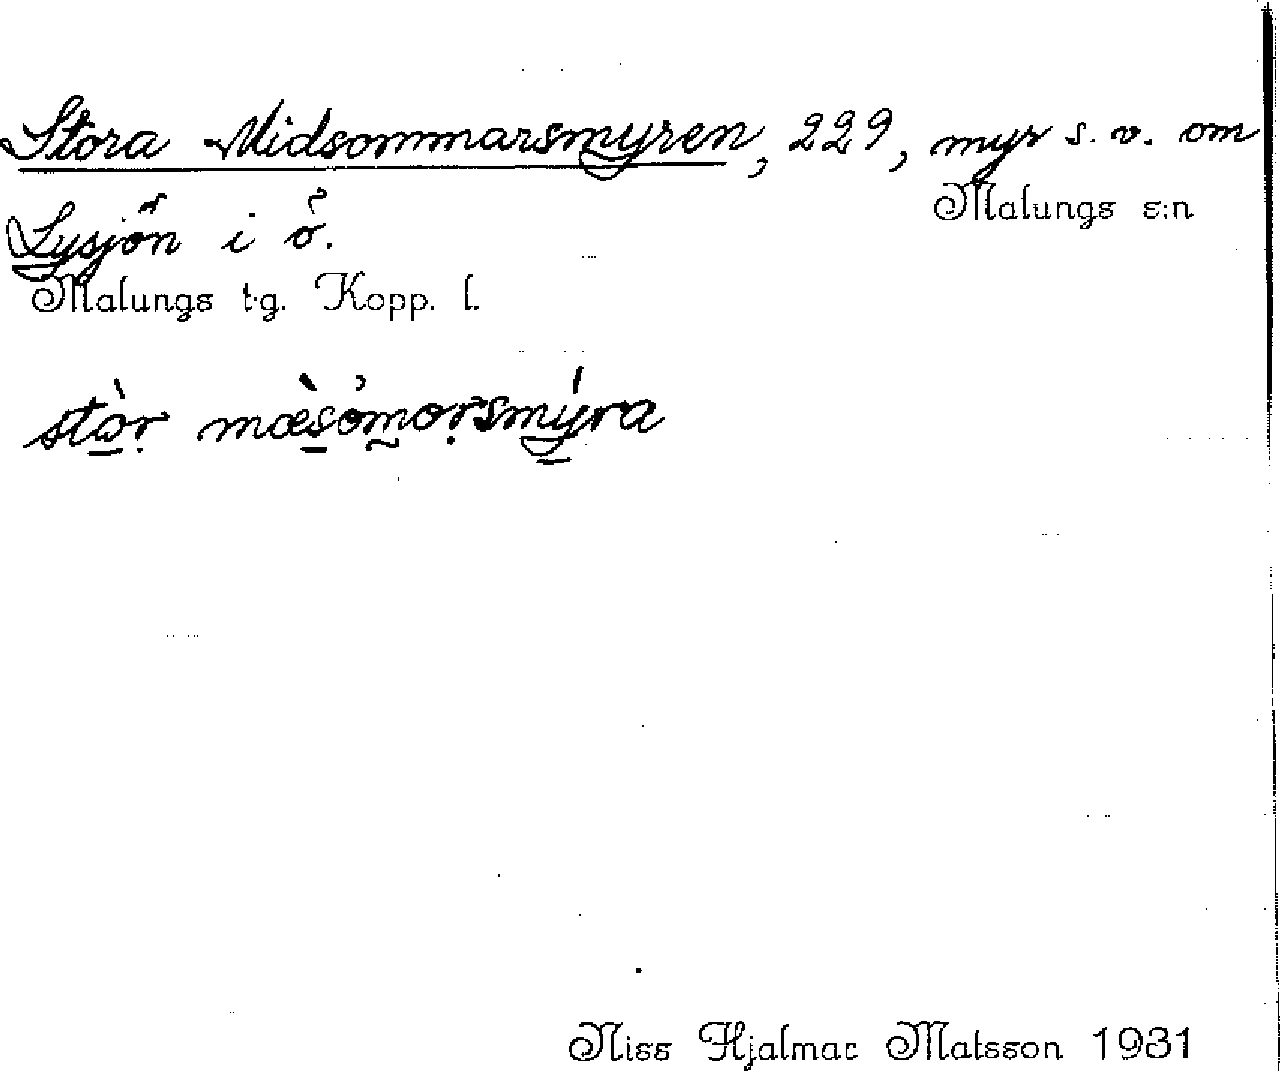 Stora Midsommarsmyren, 229, myr s.v. om
Malungs s:n
Lysjön i ö.
Malungs t.g. Kopp. l.
stòr mæ̀sómorsmýra
Niss Hjalmar Matsson 1931